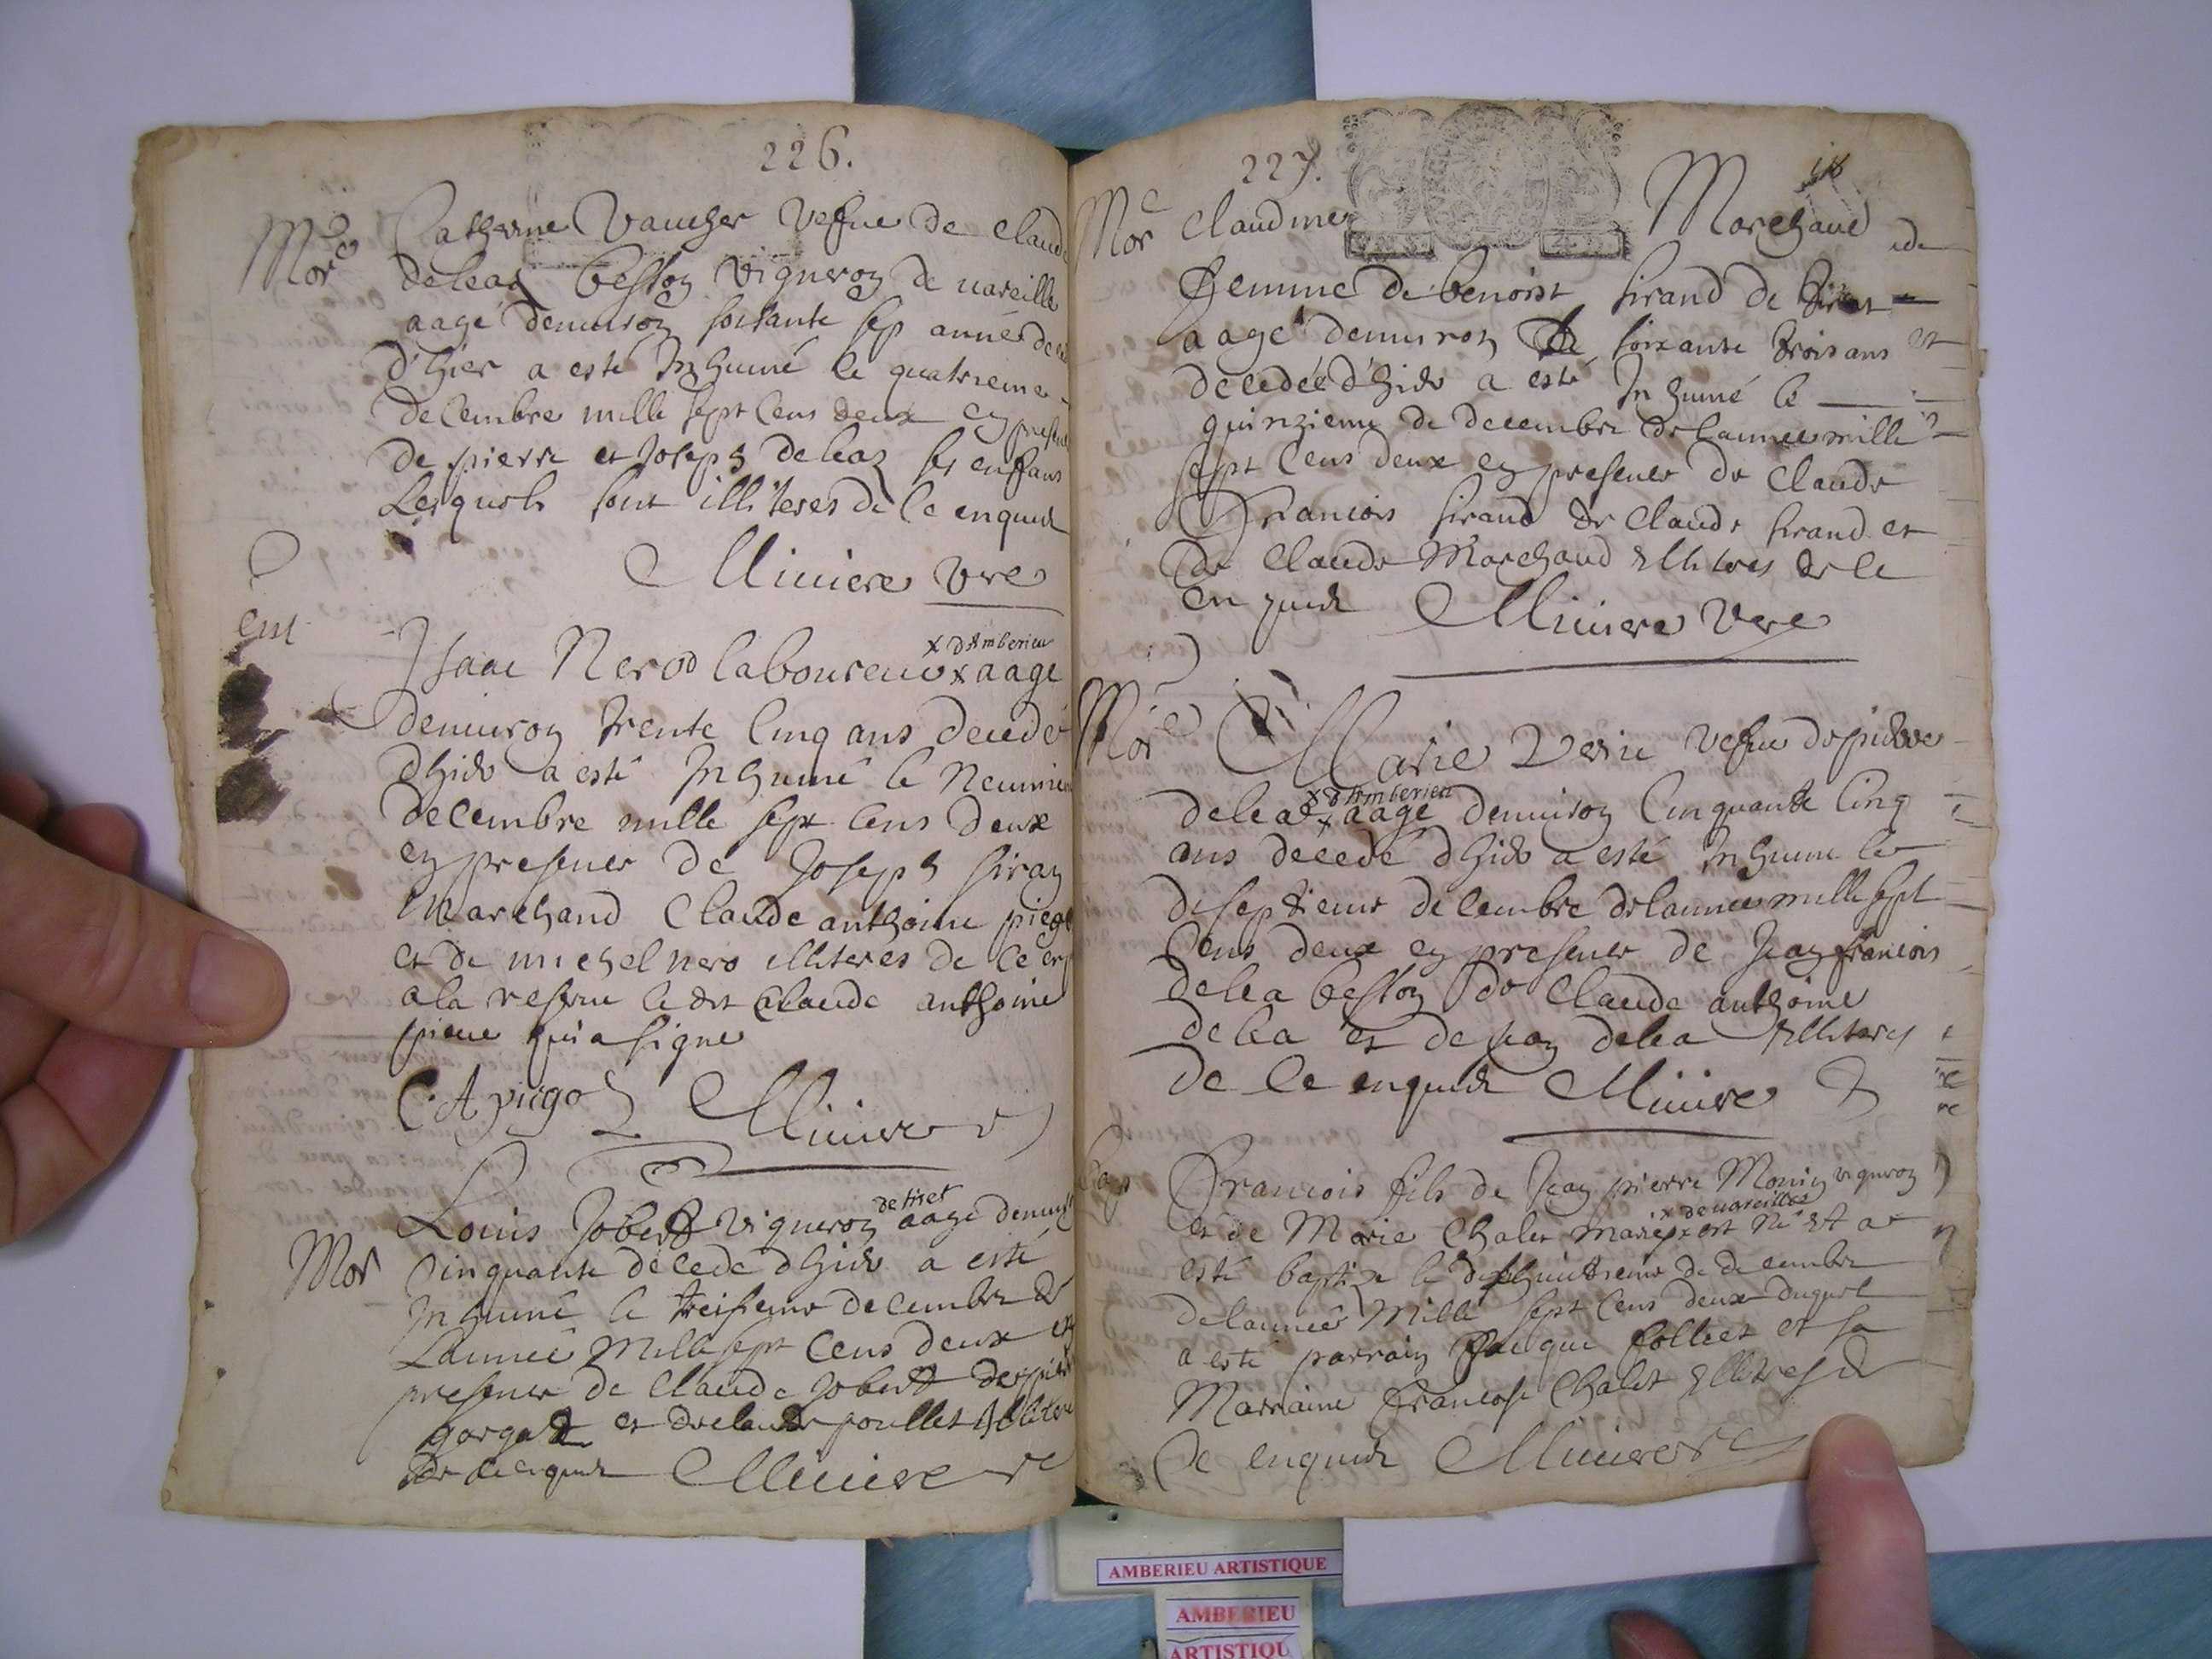 226.
Mor
Catherine Vaucher vefue de claude
deleaz besson vigneron de uareille
aagé denuiron soisante sep année
d'hier a esté Inhumé le quatrieme
decembre mille sept cens deux en
de pierre et Joseph deleaz ses enfans
Lesquels sont illiteres de ce enquis
Miniere vre
Isaac Nerod laboureur x aagé
x d'Amberieu
denuiron trente cinq ans decedé
dhier a esté Inhumé le Neuuieme
decembre mille sept cens deux
en presence de Joseph siran
Marchand Claude anthoine
et de michel nero illiteres de ce
a la reserue le dit Claude anthoine
qui a signe
C. A. Miniere
Louis Jobert vigneron aagé
de tiret
Mor
Cinquante decedé dhier a esté
Inhumé le treisieme decembre de
Lannee Mille sept cens deux en
presence de Claude Jobert
et de claude poullet
de ce enquis Miniere
227.
Mor
Claudine Marchand
femme de benoist sirand de tiret
aagé denuiron soixante trois ans
decedée d'hier a esté Inhumé le
quinzieme de decembre de lannee mille
sept cens deux en presence de Claude
Francois sirand de Claude sirand et
de Claude Marchand illiteres de ce
enquis Miniere vre
Mor
Marie vefue de pierre
delea x aagé denuiron Cinquante cinq
x d'Amberieu
ans decedé dhier a esté Inhumé le
diseptieme decembre de lannee mille sept
cens deux en presence de Jean francois
delea besson de Claude anthoine
delea et de Jean delea illiteres
de ce enquis Miniere
Bap
Francois fils de Jean pierre Monin vigneron
et de Marie Chalet mariés x est né et a
x de uareilles
esté baptizé le dixhuictieme de decembre
de lannee Mille sept cens deux duquel
a esté parrain et sa
Marraine francoise Chalet illiteres de
ce enquis Miniere
AMBERIEU ARTISTIQUE
AMBERIEU
ARTISTIQU